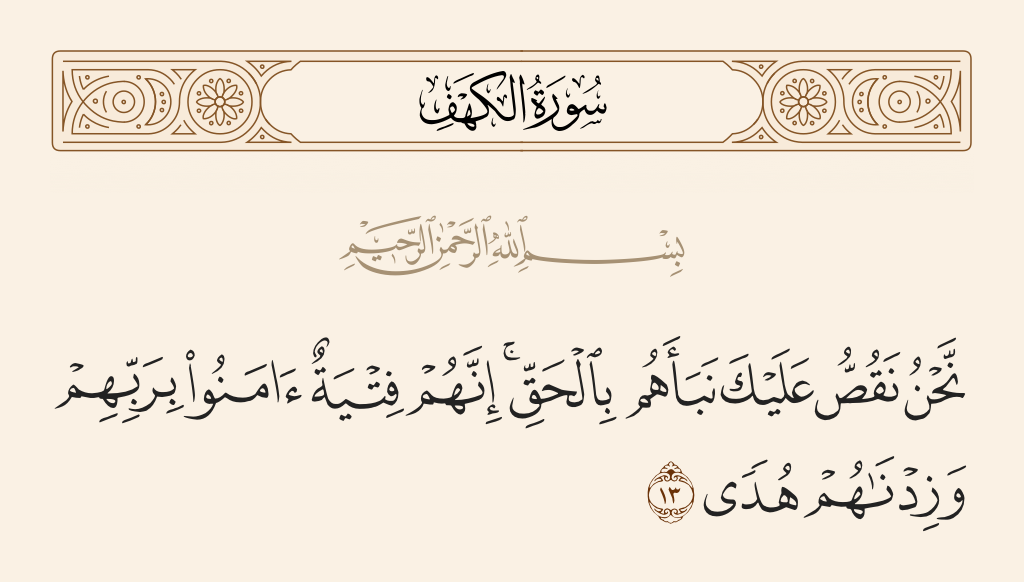 سُورَةُ الكَهْفِ
بِسْمِ ٱللَّهِ ٱلرَّحْمَٰنِ ٱلرَّحِيمِ
نَّحْنُ نَقُصُّ عَلَيْكَ نَبَأَهُم بِٱلْحَقِّ ۚ إِنَّهُمْ فِتْيَةٌ ءَامَنُوا۟ بِرَبِّهِمْ
وَزِدْنَٰهُمْ هُدًى ١٣